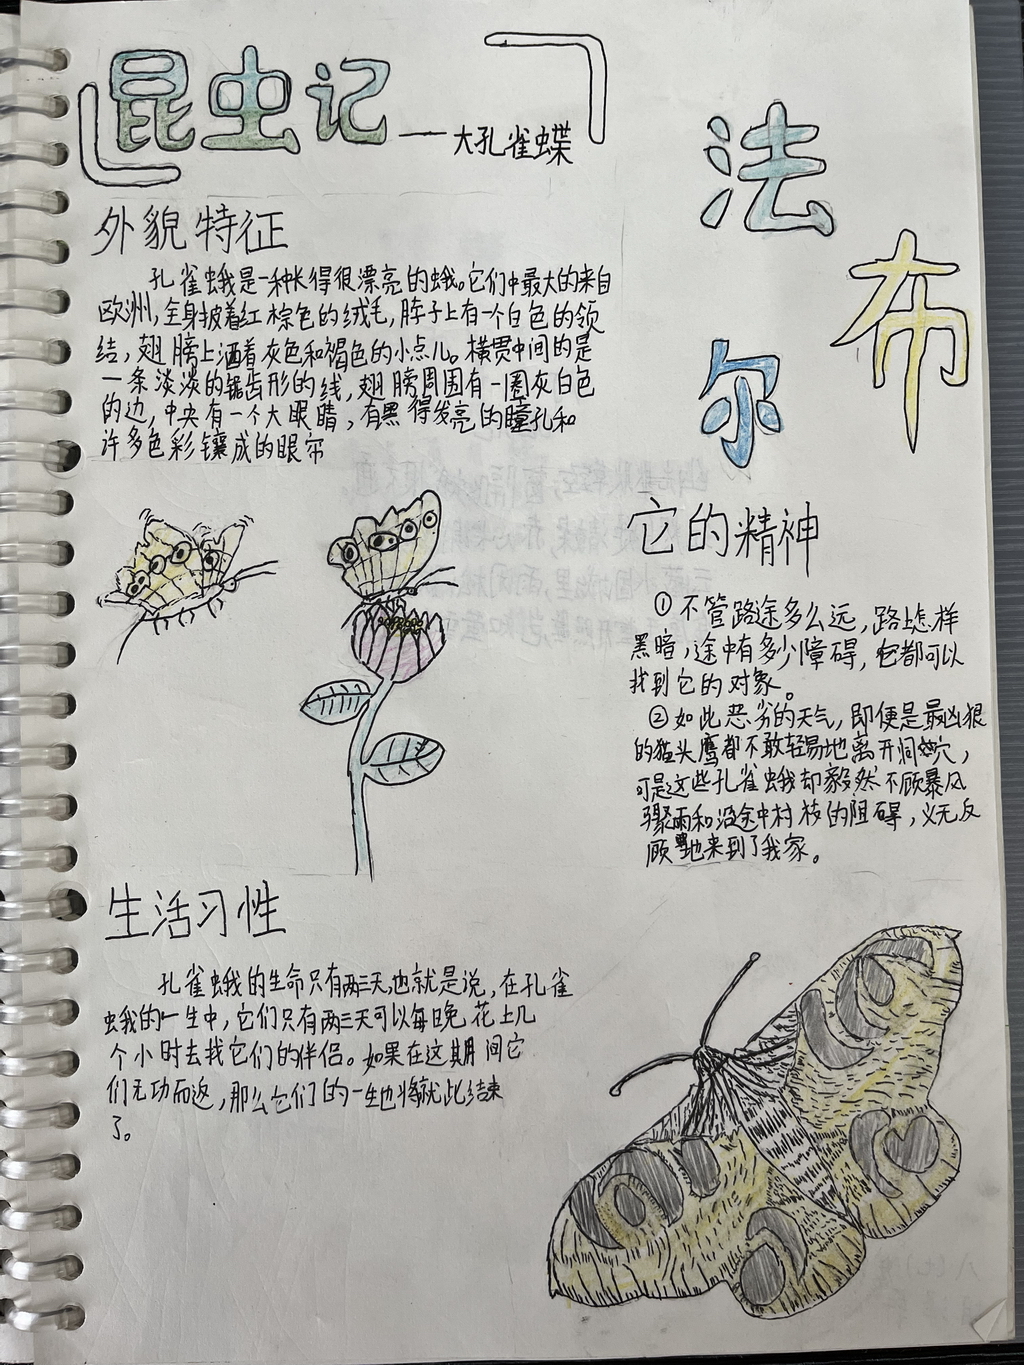 昆虫记
——大孔雀蝶
法
布
尔
外貌特征
孔雀蛾是一种长得很漂亮的蛾。它们中最大的来自
欧洲,全身披着红棕色的绒毛,脖子上有一个白色的领
结,翅膀上洒着灰色和褐色的小点儿。横贯中间的是
一条淡淡的锯齿形的线,翅膀周围有一圈灰白色
的边,中央有一个大眼睛,有黑得发亮的瞳孔和
许多色彩镶成的眼帘
它的精神
①不管路途多么远,路上怎样
黑暗,途中有多少障碍,它都可以
找到它的对象。
②如此恶劣的天气,即便是最凶狠
的猫头鹰都不敢轻易地离开洞穴,
可是这些孔雀蛾却毅然不顾暴风
骤雨和沿途中树枝的阻碍,义无反
顾地来到了我家。
生活习性
孔雀蛾的生命只有两三天,也就是说,在孔雀
蛾的一生中,它们只有两三天可以每晚花上几
个小时去找它们的伴侣。如果在这期间它
们无功而返,那么它们的一生也将就此结束
了。